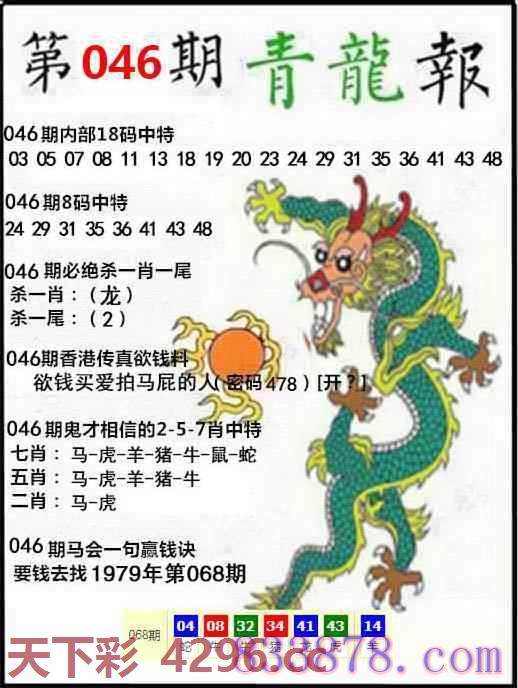 第046期 青龍報
046期内部18码中特
03 05 07 08 11 13 18 19 20 23 24 29 31 35 36 41 43 48
046期8码中特
24 29 31 35 36 41 43 48
046期必绝杀一肖一尾
杀一肖：（龙）
杀一尾：（2）
046期香港传真欲钱料
欲钱买爱拍马屁的人（密码478）[开？]
046期鬼才相信的2-5-7肖中特
七肖：马-虎-羊-猪-牛-鼠-蛇
五肖：马-虎-羊-猪-牛
二肖：马-虎
046期马会一句赢钱诀
要钱去找1979年第068期
068期 04 08 32 34 41 43 14
蛇 牛 牛 猪 龙 虎 羊
天下彩 4296.cc